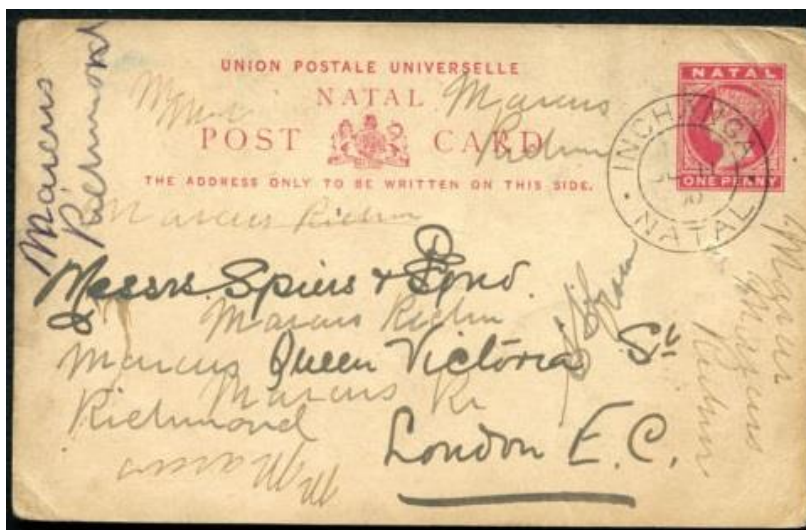 Marcus
Richmond
UNION POSTALE UNIVERSELLE
NATAL
POST CARD
THE ADDRESS ONLY TO BE WRITTEN ON THIS SIDE.
NATAL
ONE PENNY
INCHANGA
NATAL
Marcus
Richm
Marcus Richm
Messrs Spiers & Pond
Marcus Richm
Marcus
Queen Victoria St
Marcus Ri
Richmond
London E.C.
Marcus
Richm